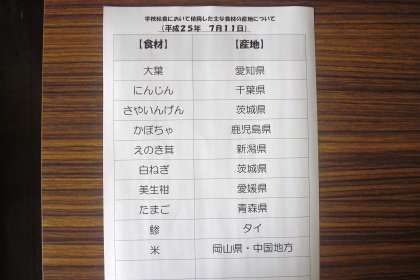 学校給食において使用した主な食材の産地について
(平成25年 7月11日)
【食材】 【産地】
大葉 愛知県
にんじん 千葉県
さやいんげん 茨城県
かぼちゃ 鹿児島県
えのき茸 新潟県
白ねぎ 茨城県
美生柑 愛媛県
たまご 青森県
鯵 タイ
米 岡山県・中国地方